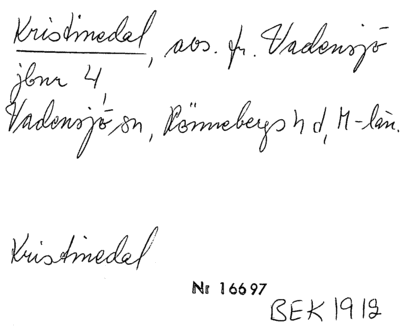 Kristinedal, avs. fr. Vadensjö
jbnr 4,
Vadensjö sn, Rönnebergs hd, M-län.
Kristinedal
Nr 16697
BEK 1912